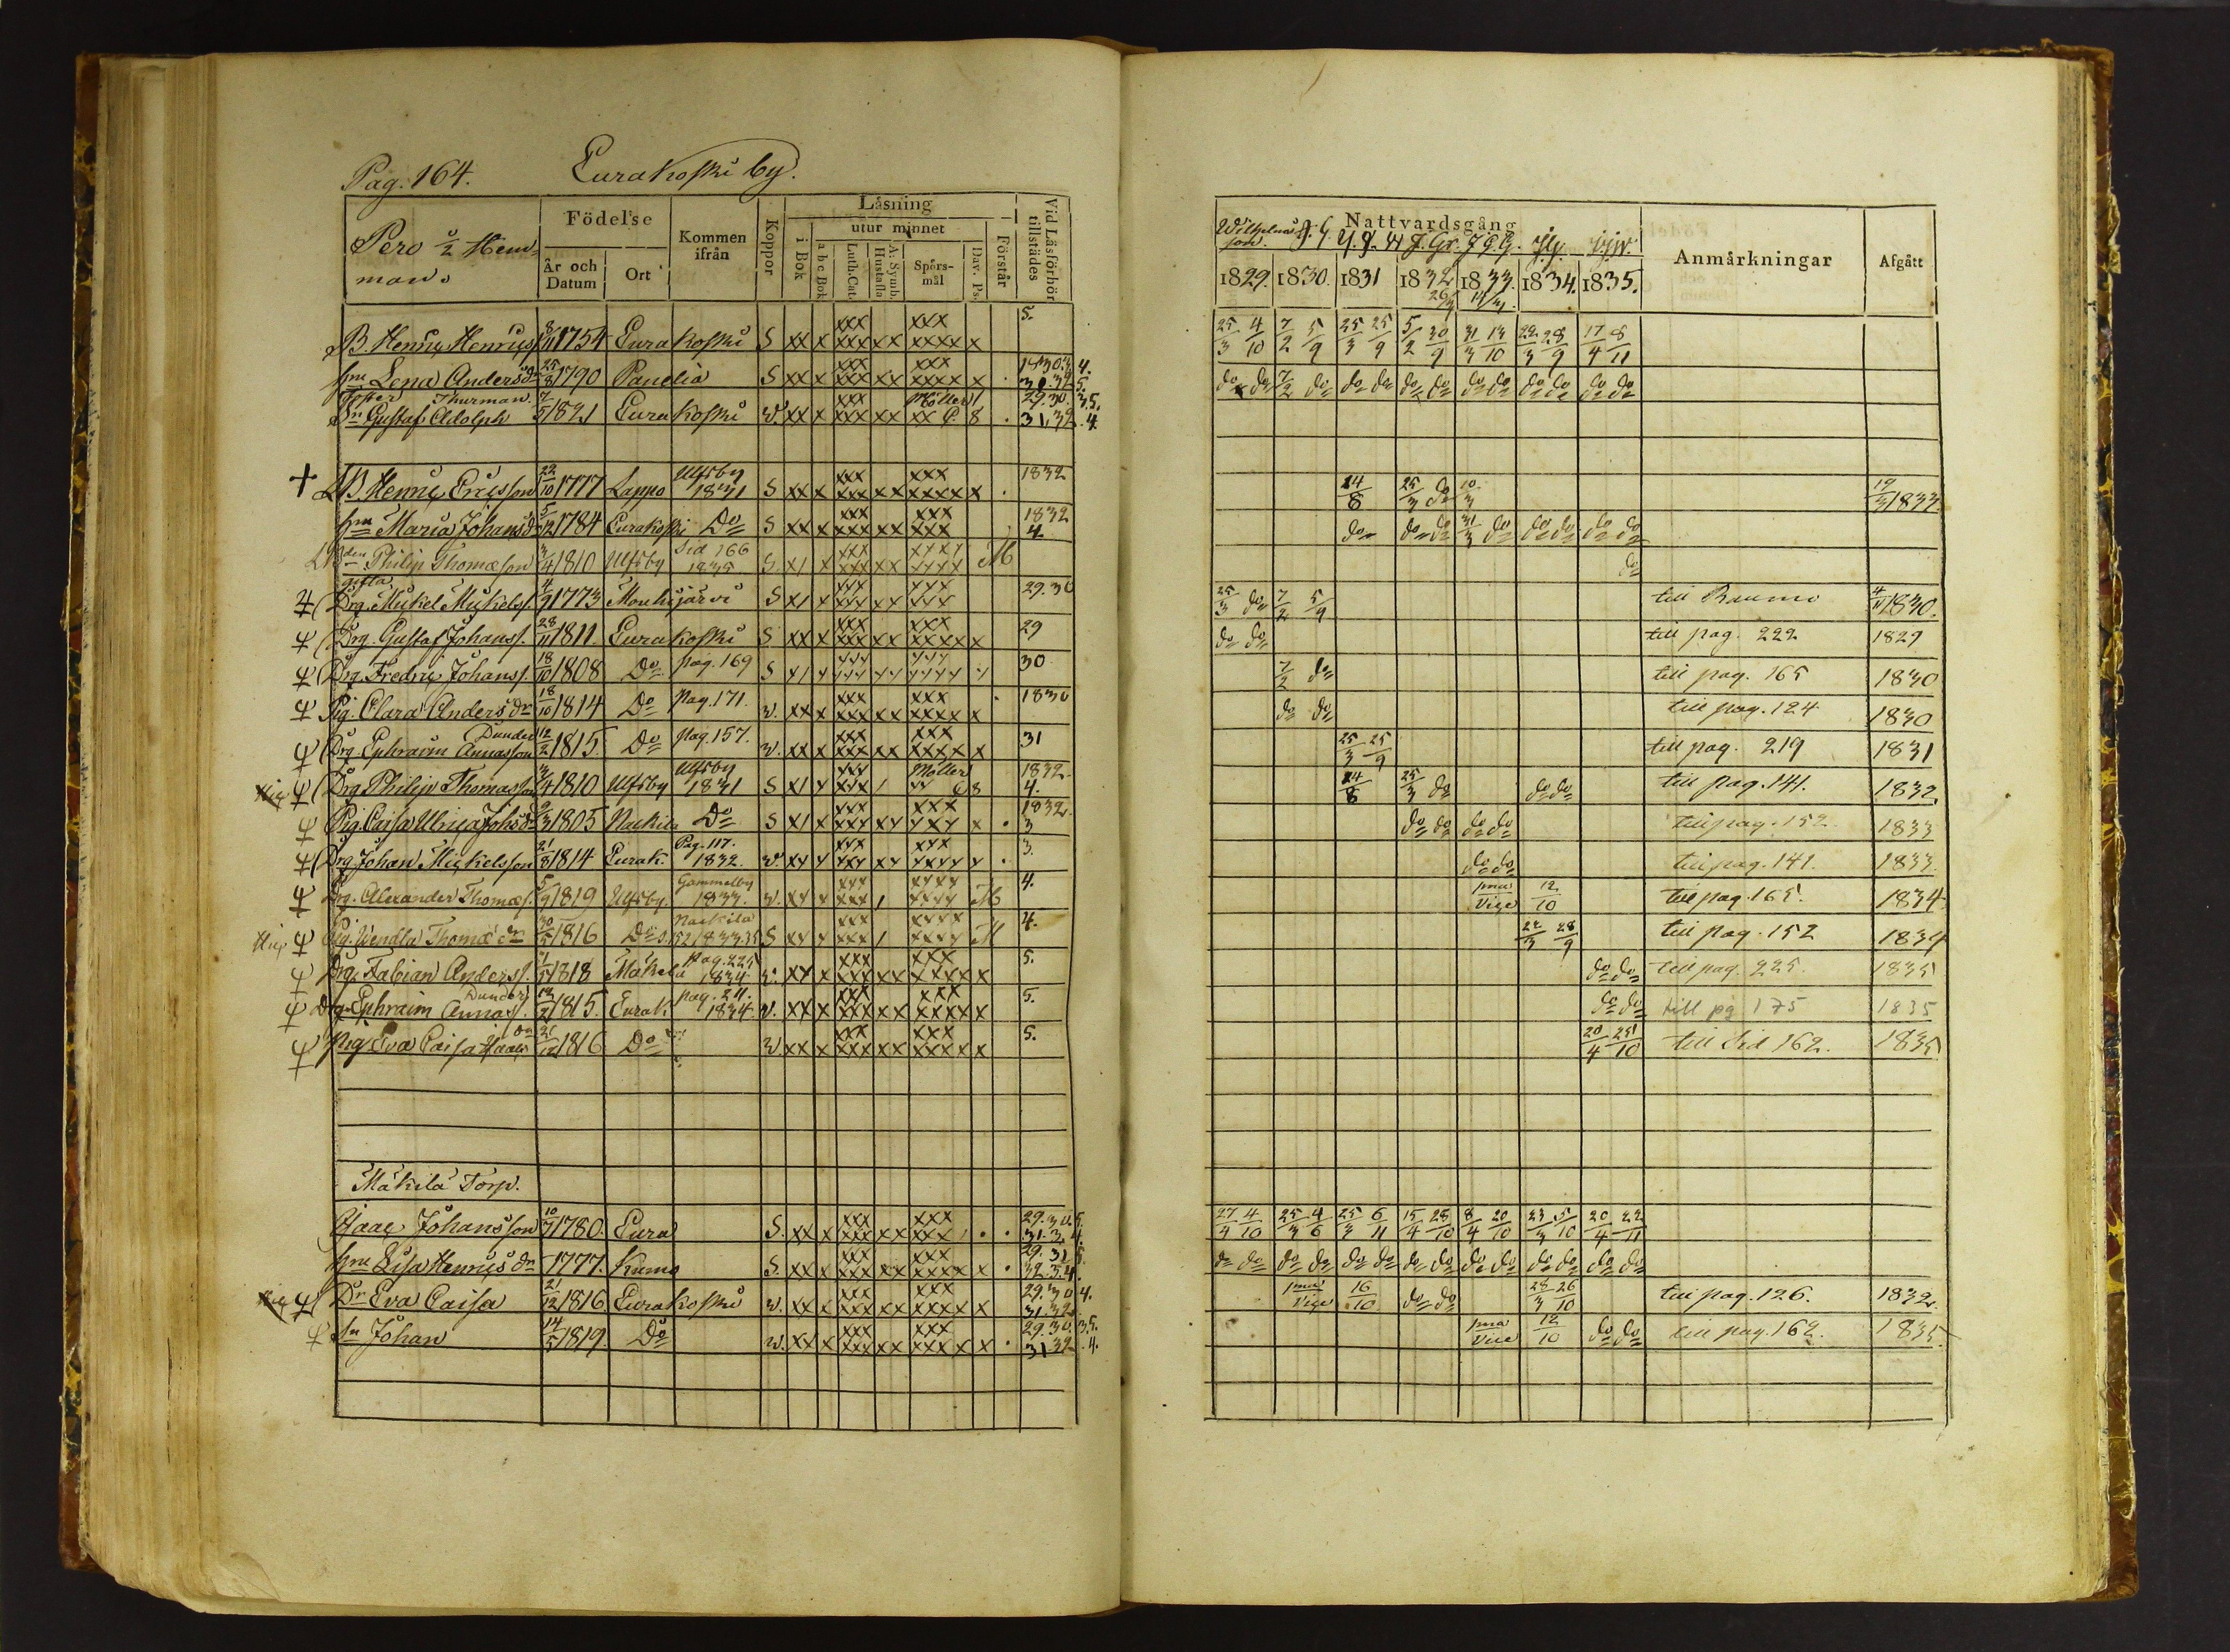 Pag. 164. Eurakoski by.
Pero ½ Hem-
man.
Födelse
År och Datum
Ort
Kommen ifrån
Koppor
Läsning
i Bok
utur minnet
a b c Bok
Luth. Cat.
A. Symb. Hustafla
Spörs-mål
Dav. Ps.
Förstår
Vid Läsförhör tillstädes
B. Henric Henricss. 8/11 1754 Eurakoski S xx x xxx xxx xx xxx xxxx x 5.
hru Lena Andersdr 25/8 1790 Panelia S xx x xxx xxx xx xxx xxxx x
Foster Thurman
Sn Gustaf Adolph 7/5 1821 Eurakoski v. xx x xxx xxx xx Möller xx C. 8 . 29. 30. 3.5. 31, 32. 4.
+ LB. Henric Ericsson 22/10 1777 Lappo Ulfsby 1831 S xx x xxx xxx xx xxx xxxxx x . 1832
hru Maria Johansdr 5/12 1784 Eurakoski Do S xx x xxx xxx xx xxx xxx 1832 4.
Philip Thomæson 3/4 1810 Ulfsby Sid 166 1835 S. x/ x xxx xxx xx xxxx xxxx M
gifta
Drg. Mickel Mickelss. 4/9 1773 Mouhijärvi S x/ x xxx xxx xx xxx xxx 29. 30
Drg. Gustaf Johanss. 28/11 1811 Eurakoski S xx x xxx xxx xx xxx xxxxx x 29
Drg. Fredric Johanss. 18/10 1808 Do pag. 169 S x/ x xxx xxx xx xxx xxxx x 30
Pig. Clara Andersdr 18/10 1814 Do Pag. 171. v. xx x xxx xxx xx xxx xxxx x 1830
Dunder
Drg. Ephraim Annasson 12/2 1815. Do Pag. 157. v. xx x xxx xxx xx xxx xxxx x 31
Drg. Philip Thomasson 3/4 1810 Ulfsby Ulfsby 1831 S x/ x xxx xxx / Möller xx C 8 1832. 4.
Pig. Caisa Ulrica Johsdr 9/3 1805 Nackila Do S x/ x xxx xxx xx xxx xxx x . 1832. 3
Drg. Johan Mickelsson 21/8 1814 Eurak. Pag. 117. 1832. v. xx x xxx xxx xx xxx xxxx x . 3.
Drg. Alexander Thomæs. 5/9 1819 Ulfsby. Gammelby 1833. v. xx x xxx xxx / xxxx xxxx M 4.
Pig. Wendla Thomædr 30/5 1816 Do Nackila S xx x xxx xxx / xxxx xxxx M 4.
Drg. Fabian Anderss. 1818 Mäkelä Pag. 225 1834. v. xx x xxx xxx xx xxx xxxx x 5.
Dunder
Drg. Ephraim Annass. 12/2 1815. Eurak. pag. 211. 1834. v. xx x xxx xxx xx xxx xxxx x 5.
Pig Eva Caisa Isaacsdr 21/12 1816 Do v. xx x xxx xxx xx xxx xxxx x 5.
Mäkilä Torp.
Isaac Johansson 10/7 1780. Eura S. xx x xxx xxx xx xxx xxx / . . 29. 30. 5. 31. 3. 4.
hru Lisa Henricsdr 1777. Kumo S. xx x xxx xxx xx xxx xxxx x . 29. 31 5. 32. 3. 4.
Dr Eva Caisa 21/12 1816 Eurakoski v. xx x xxx xxx xx xxx xxxx x 29. 30 4. 31. 32.
Sn Johan 14/5 1819. Do v. xx x xxx xxx xx xxx xxxx x . 29. 30. 3.5. 31. 32 . 4.
Nattvardsgång
Anmärkningar
Afgått
1829. 1830. 1831 1832 1833. 1834. 1835.
25/3 4/10 7/2 5/9 25/3 25/9 5/2 30/9 31/3 13/10 22/3 28/9 17/4 8/11
do do 7/2 do do do do do do do do do do do
14/8 25/3 do 10/3 19/3 1833.
do do do 31/3 do do do do do
do
25/3 do 7/2 5/9 till Raumo 4/11 1830.
do do till pag. 222 1829
7/2 do till pag. 165 1830
do do till pag. 124 1830
25/3 25/9 till pag. 219 1831
14/8 25/3 do do do till pag. 141. 1832.
do do do do till pag. 152. 1833
do do till pag. 141. 1833.
pma Vice 12/10 till pag. 165. 1834
22/3 28/9 till pag. 152 1834
do do till pag. 225. 1835
do do till pg 175 1835
20/4 25/10 till Sid 162. 1835
27/4 4/10 25/3 4/6 25/3 6/11 15/4 28/10 8/4 20/10 23/3 5/10 20/4 22/11
do do do do do do do do do do do do do do
pma Vice 16/10 do do 28/3 26/10 till pag. 126. 1832.
pma Vice 12/10 do do till pag. 162. 1835.